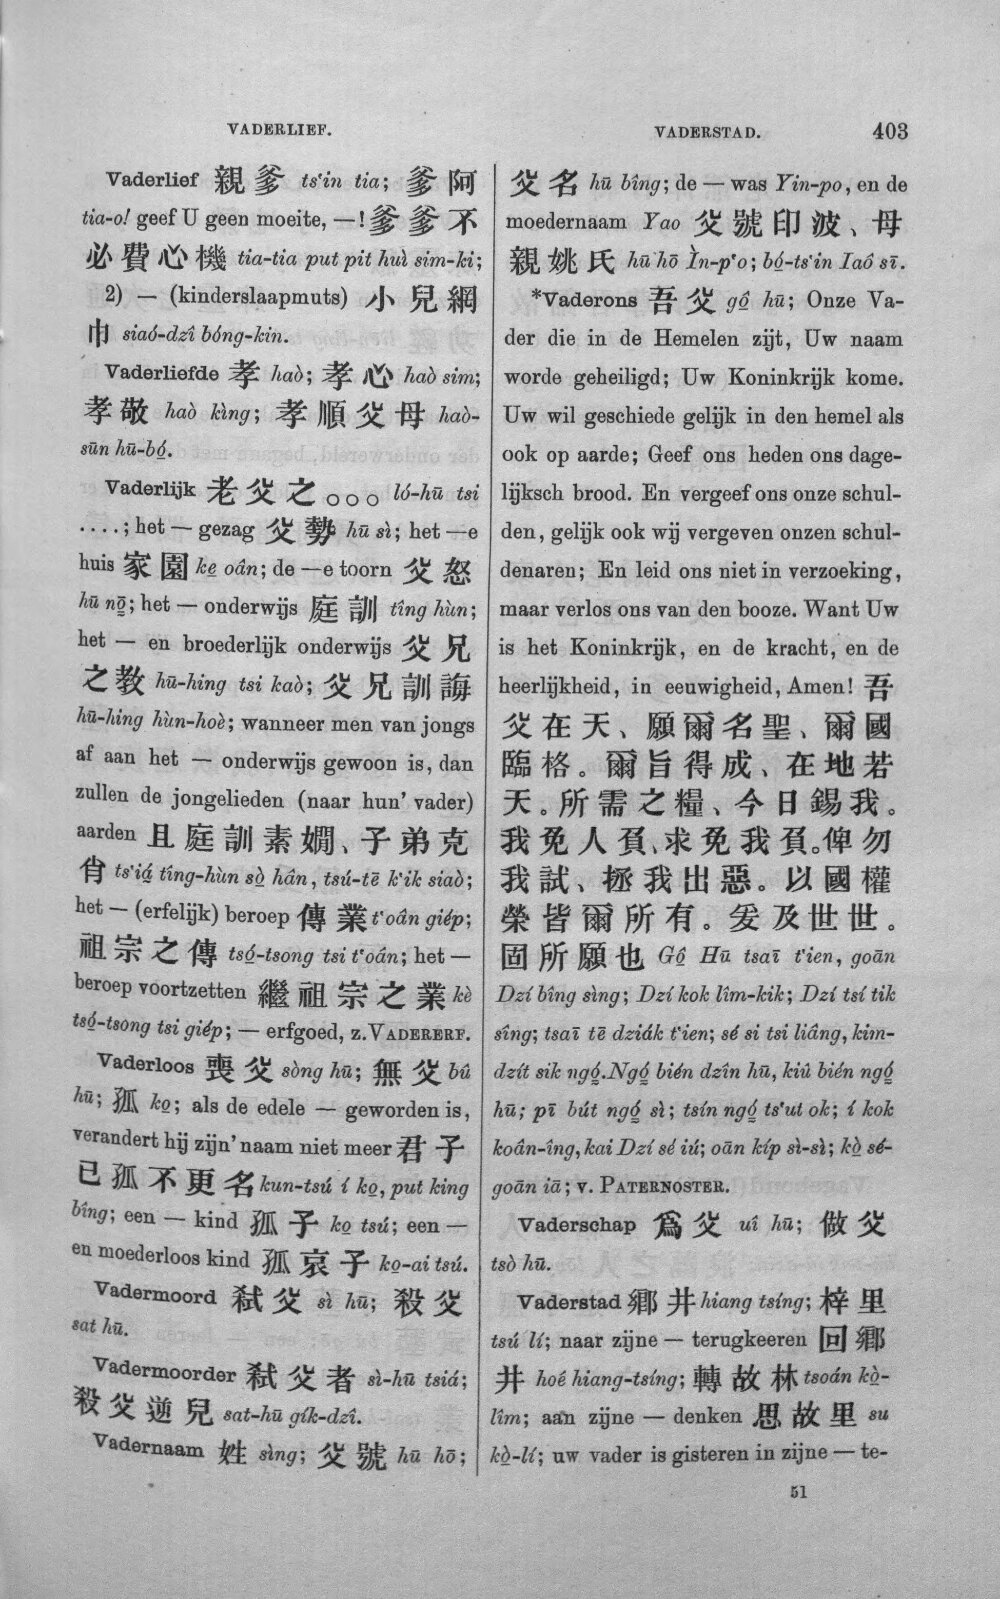 VADERLIEF.
VADERSTAD.
403
Vaderlief 親爹 ts‘in tia; 爹阿
tia-o! geef U geen moeite, —! 爹爹不
必費心機 tia-tia put pit huì sim-ki;
2) — (kinderslaapmuts) 小兒網
巾 siaó-dzî bóng-kin.
Vaderliefde 孝 haò; 孝心 haò sim;
孝敬 haò kìng; 孝順父母 haò-
sūn hū-bó̤.
Vaderlijk 老父之○○○ ló-hū tsi
....; het — gezag 父勢 hū sì; het —e
huis 家園 ke̤ oân; de —e toorn 父怒
hū nō̤; het — onderwijs 庭訓 tîng hùn;
het — en broederlijk onderwijs 父兄
之教 hū-hing tsi kaò; 父兄訓誨
hū-hing hùn-hoè; wanneer men van jongs
af aan het — onderwijs gewoon is, dan
zullen de jongelieden (naar hun’ vader)
aarden 且庭訓素嫺、子弟克
肖 ts‘iá̤ tîng-hùn sò̤ hân, tsú-tē k‘ik siaò;
het — (erfelijk) beroep 傳業 t‘oân giép;
祖宗之傳 tsó̤-tsong tsi t‘oán; het —
beroep voortzetten 繼祖宗之業 kè
tsó̤-tsong tsi giép; — erfgoed, z. VADERERF.
Vaderloos 喪父 sòng hū; 無父 bû
hū; 孤 ko̤; als de edele — geworden is,
verandert hij zijn’ naam niet meer 君子
已孤不更名 kun-tsú í ko̤, put king
bîng; een — kind 孤子 ko̤ tsú; een —
en moederloos kind 孤哀子 ko̤-ai tsú.
Vadermoord 弑父 sì hū; 殺父
sat hū.
Vadermoorder 弑父者 sì-hū tsiá;
殺父逆兒 sat-hū gík-dzî.
Vadernaam 姓 sìng; 父號 hū hō;
父名 hū bîng; de — was Yin-po, en de
moedernaam Yao 父號印波、母
親姚氏 hū hō Ìn-p‘o; bó̤-ts‘in Iaô sī.
*Vaderons 吾父 gô̤ hū; Onze Va-
der die in de Hemelen zijt, Uw naam
worde geheiligd; Uw Koninkrijk kome.
Uw wil geschiede gelijk in den hemel als
ook op aarde; Geef ons heden ons dage-
lijksch brood. En vergeef ons onze schul-
den, gelijk ook wij vergeven onzen schul-
denaren; En leid ons niet in verzoeking,
maar verlos ons van den booze. Want Uw
is het Koninkrijk, en de kracht, en de
heerlijkheid, in eeuwigheid, Amen! 吾
父在天、願爾名聖、爾國
臨格。爾旨得成、在地若
天。所需之糧、今日錫我。
我免人負、求免我負。俾勿
我試、拯我出惡。以國權
榮皆爾所有。爰及世世。
固所願也 Gô̤ Hū tsaī t‘ien, goān
Dzí bîng sìng; Dzí kok lîm-kik; Dzí tsí tik
sîng; tsaī tē dziák t‘ien; sé si tsi liâng, kim-
dzít sik ngó̤. Ngó̤ bién dzîn hū, kiû bién ngó̤
hū; pī bút ngó̤ sì; tsín ngó̤ ts‘ut ok; í kok
koân-îng, kai Dzí sé iú; oān kíp sì-sì; kò̤ sé-
goān iā; v. PATERNOSTER.
Vaderschap 爲父 uî hū; 做父
tsò hū.
Vaderstad 鄉井 hiang tsíng; 梓里
tsú lí; naar zijne — terugkeeren 回鄉
井 hoé hiang-tsíng; 轉故林 tsoán kò̤-
lîm; aan zijne — denken 思故里 su
kò̤-lí; uw vader is gisteren in zijne — te-
51